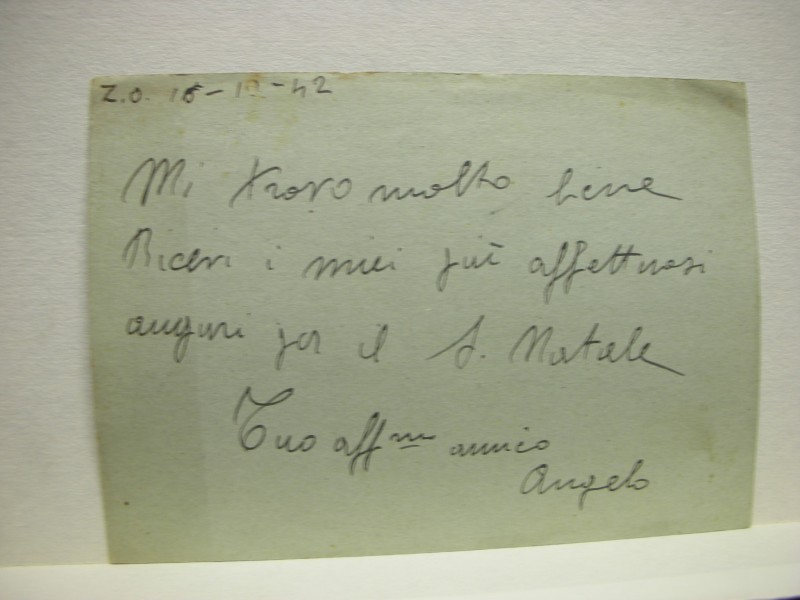 Z.O. 18-12-42
Mi trovo molto bene
Ricevi i miei più affettuosi
auguri per il S. Natale
Tuo aff.mo amico
Angelo